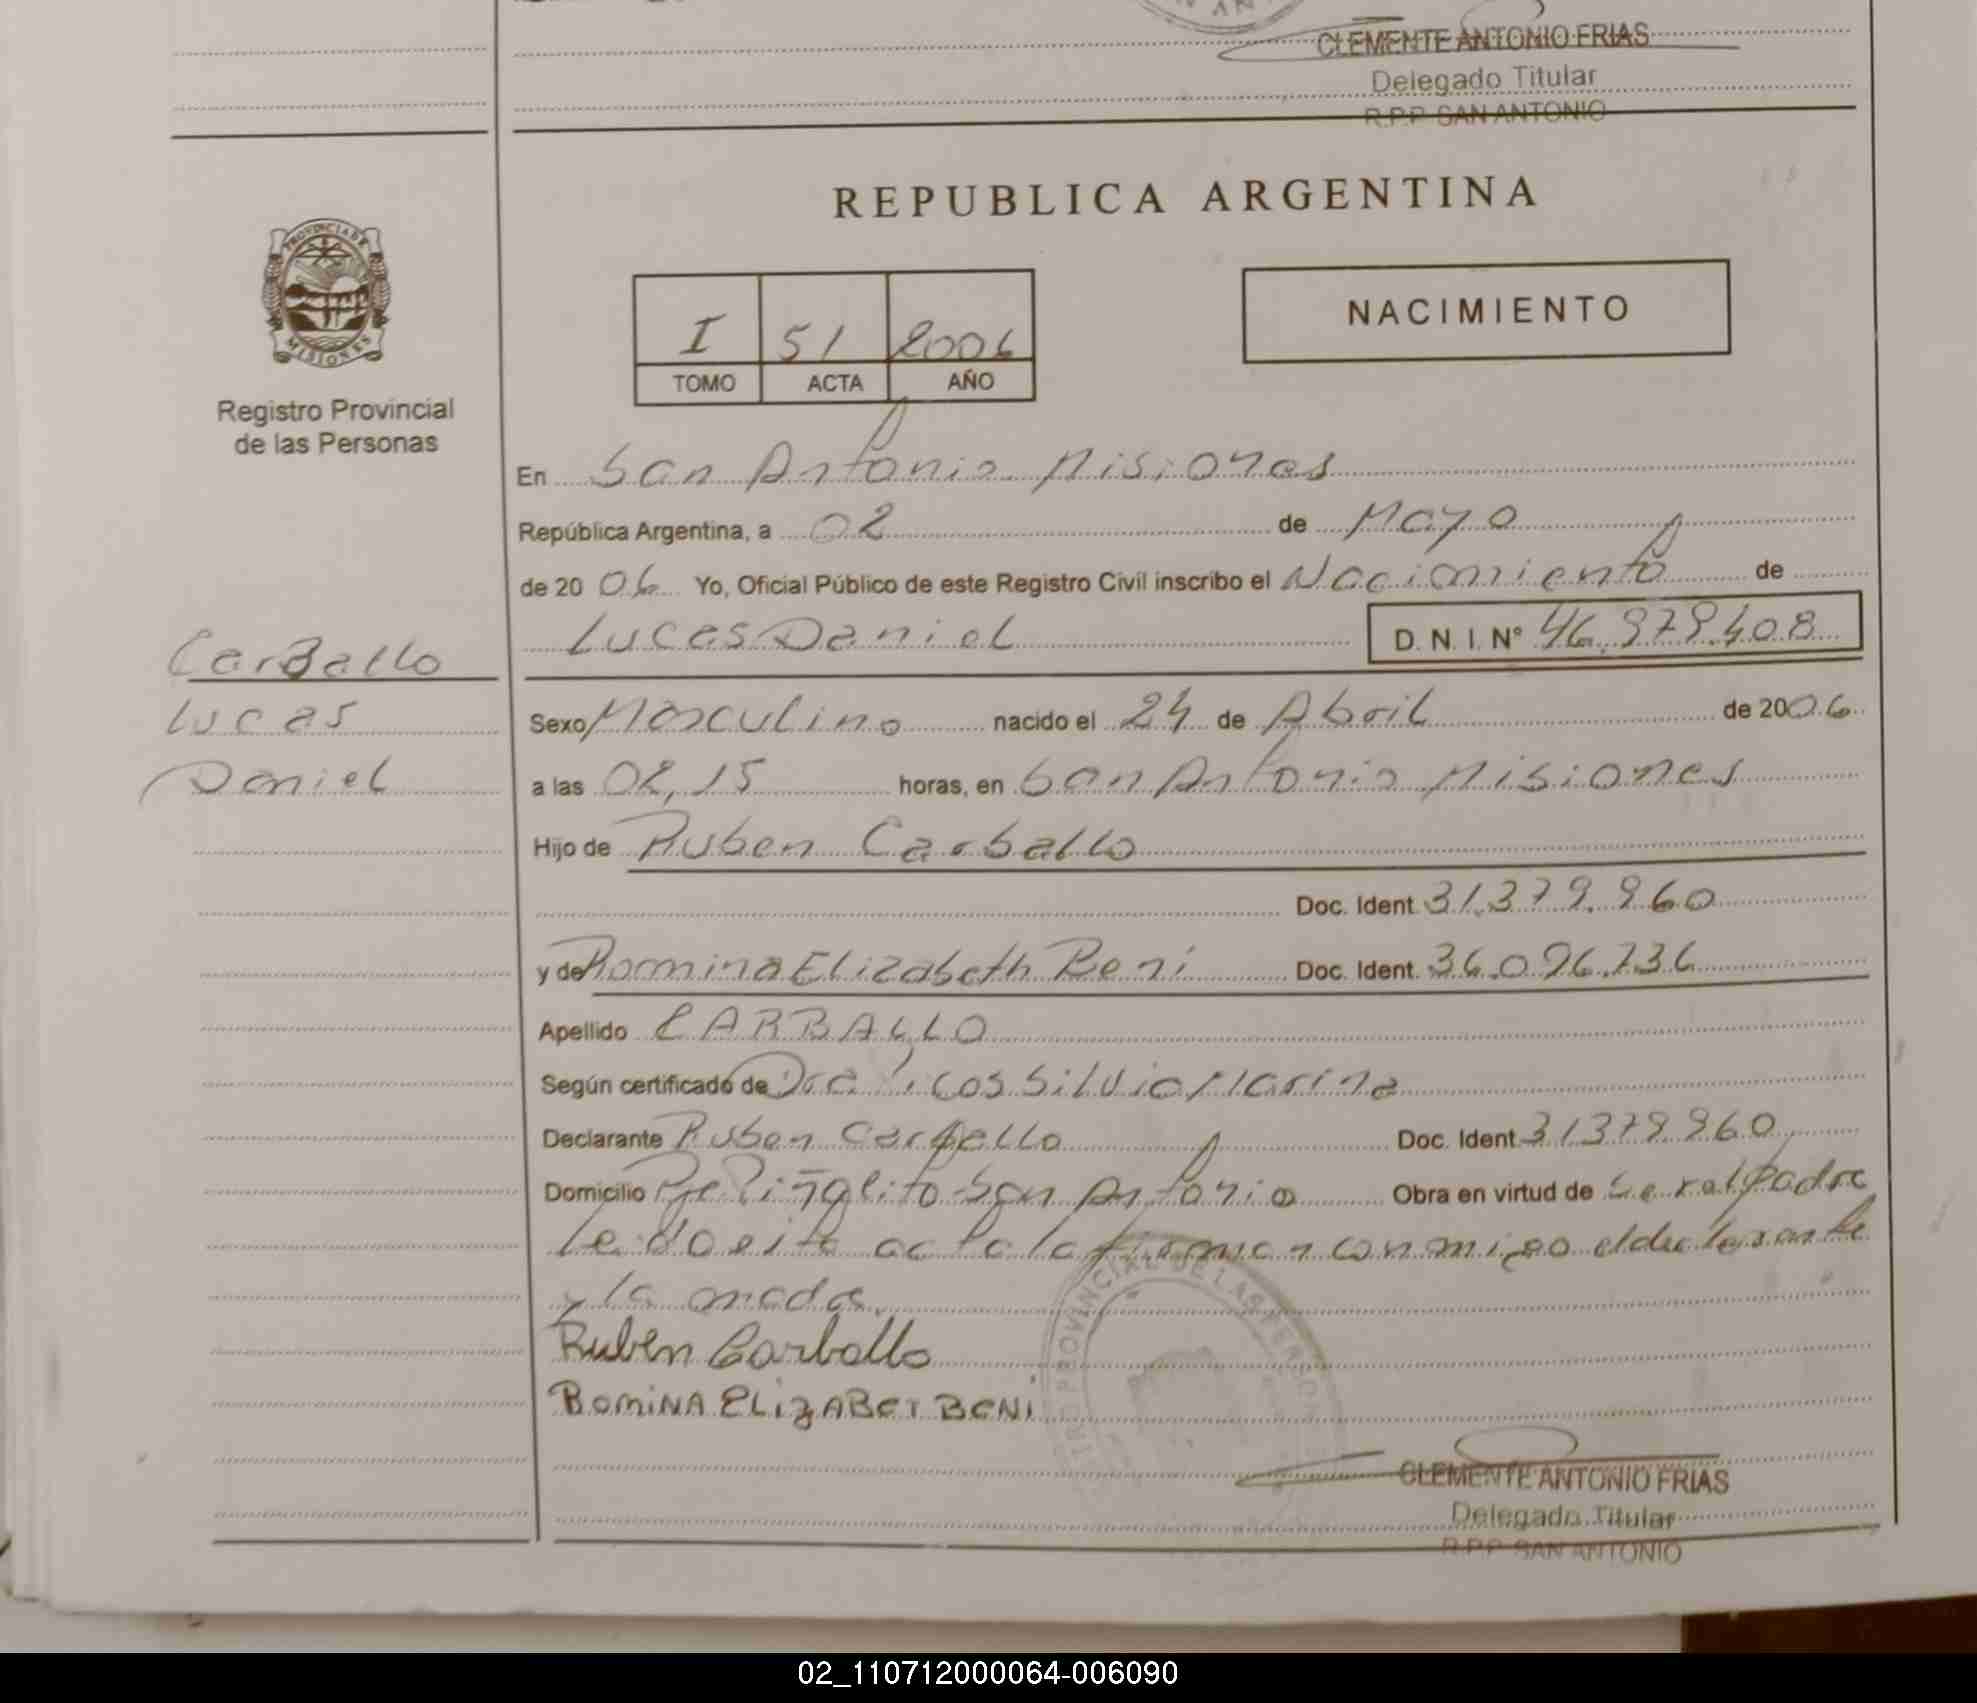 CLEMENTE ANTONIO FRIAS
Delegado Titular
R.P.P. SAN ANTONIO
REPUBLICA ARGENTINA
PROVINCIA DE MISIONES
Registro Provincial
de las Personas
I 51 2006
TOMO ACTA AÑO
NACIMIENTO
En San Antonio Misiones
República Argentina, a 02 de Mayo
de 20 06 Yo, Oficial Público de este Registro Civil inscribo el Nacimiento de
Lucas Daniel D. N. I. N° 46.979.408
Carballo
Lucas
Daniel
Sexo Masculino nacido el 24 de Abril de 2006
a las 02,15 horas, en San Antonio Misiones
Hijo de Ruben Carballo
Doc. Ident. 31.379.960
y de Romina Elizabeth Beni Doc. Ident. 36.096.736
Apellido CARBALLO
Según certificado de Dra Silvia Marina
Declarante Ruben Carballo Doc. Ident. 31379960
Domicilio Piñalito San Antonio Obra en virtud de Ser el Padre
Leido esta acta la firman conmigo el declarante
y la madre.
Ruben Carballo
ROMINA ELIZABET BENI
CLEMENTE ANTONIO FRIAS
Delegado Titular
R.P.P. SAN ANTONIO
02_110712000064-006090